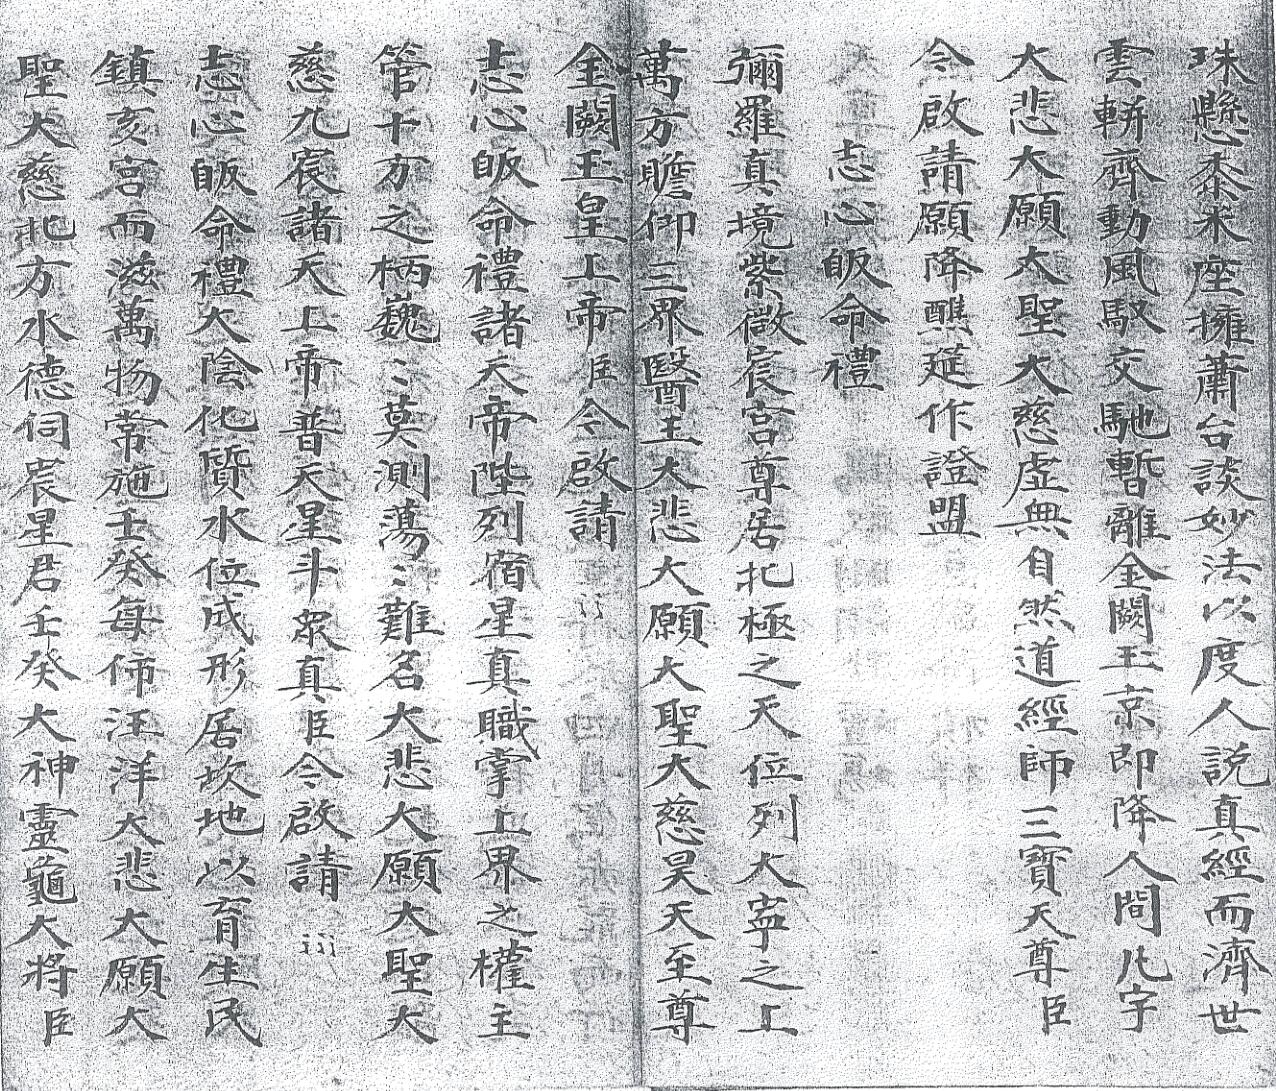 珠懸黍米座擁蕭台談妙法以度人説真經而濟世
雲輧齊動風馭交馳暫離金闕玉京即降人間凢字
大悲大願大聖大慈虚無自然道經師三寶天尊臣
今啟請願降醮筵作證盟
志心皈命禮
彌羅真境紫微宸宫尊居北極之天位列大寧之上
萬方瞻仰三界醫王大悲大願大聖大慈昊天至尊
金闕玉皇上帝臣今啟請
志心皈命禮諸天帝陛列宿星真職掌上界之權主
管十方之柄巍〻莫測蕩〻難名大悲大願大聖大
慈九宸諸天上帝普天星斗衆真臣今啟請
志心皈命禮大陰化質水位成形居坎地以育生民
鎮亥宫而滋萬物常施壬癸每佈汪洋大悲大願大
聖大慈北方水德伺宸星君壬癸大神靈龜大将臣